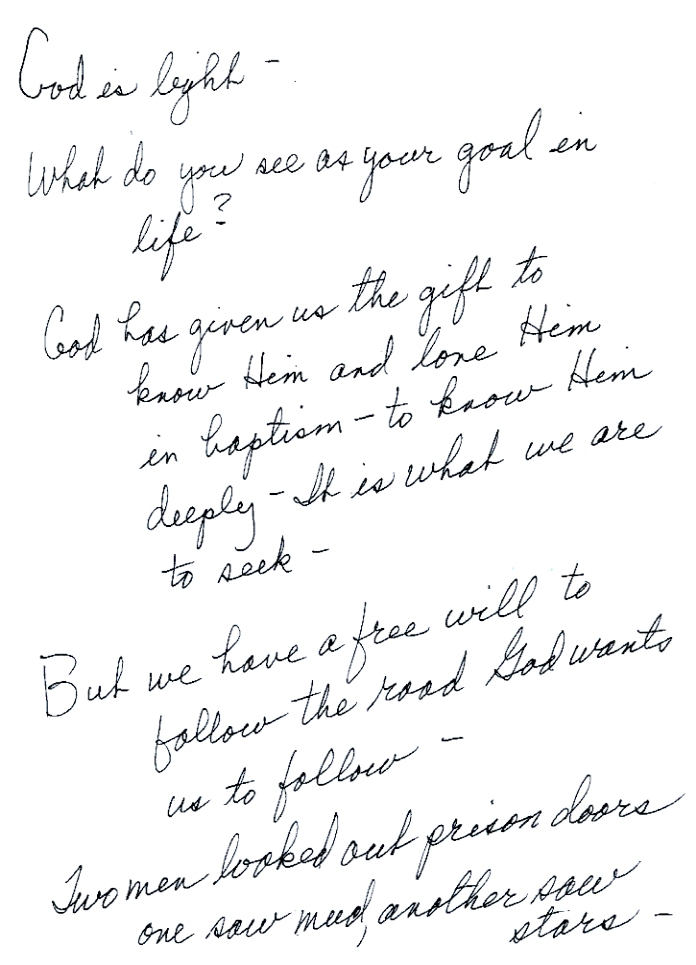 God is light -
What do you see as your goal in
life?
God has given us the gift to
know Him and love Him
in baptism - to know Him
deeply - It is what we are
to seek -
But we have a free will to
follow the road God wants
us to follow -
Two men looked out prison doors
one saw mud, another saw
stars -